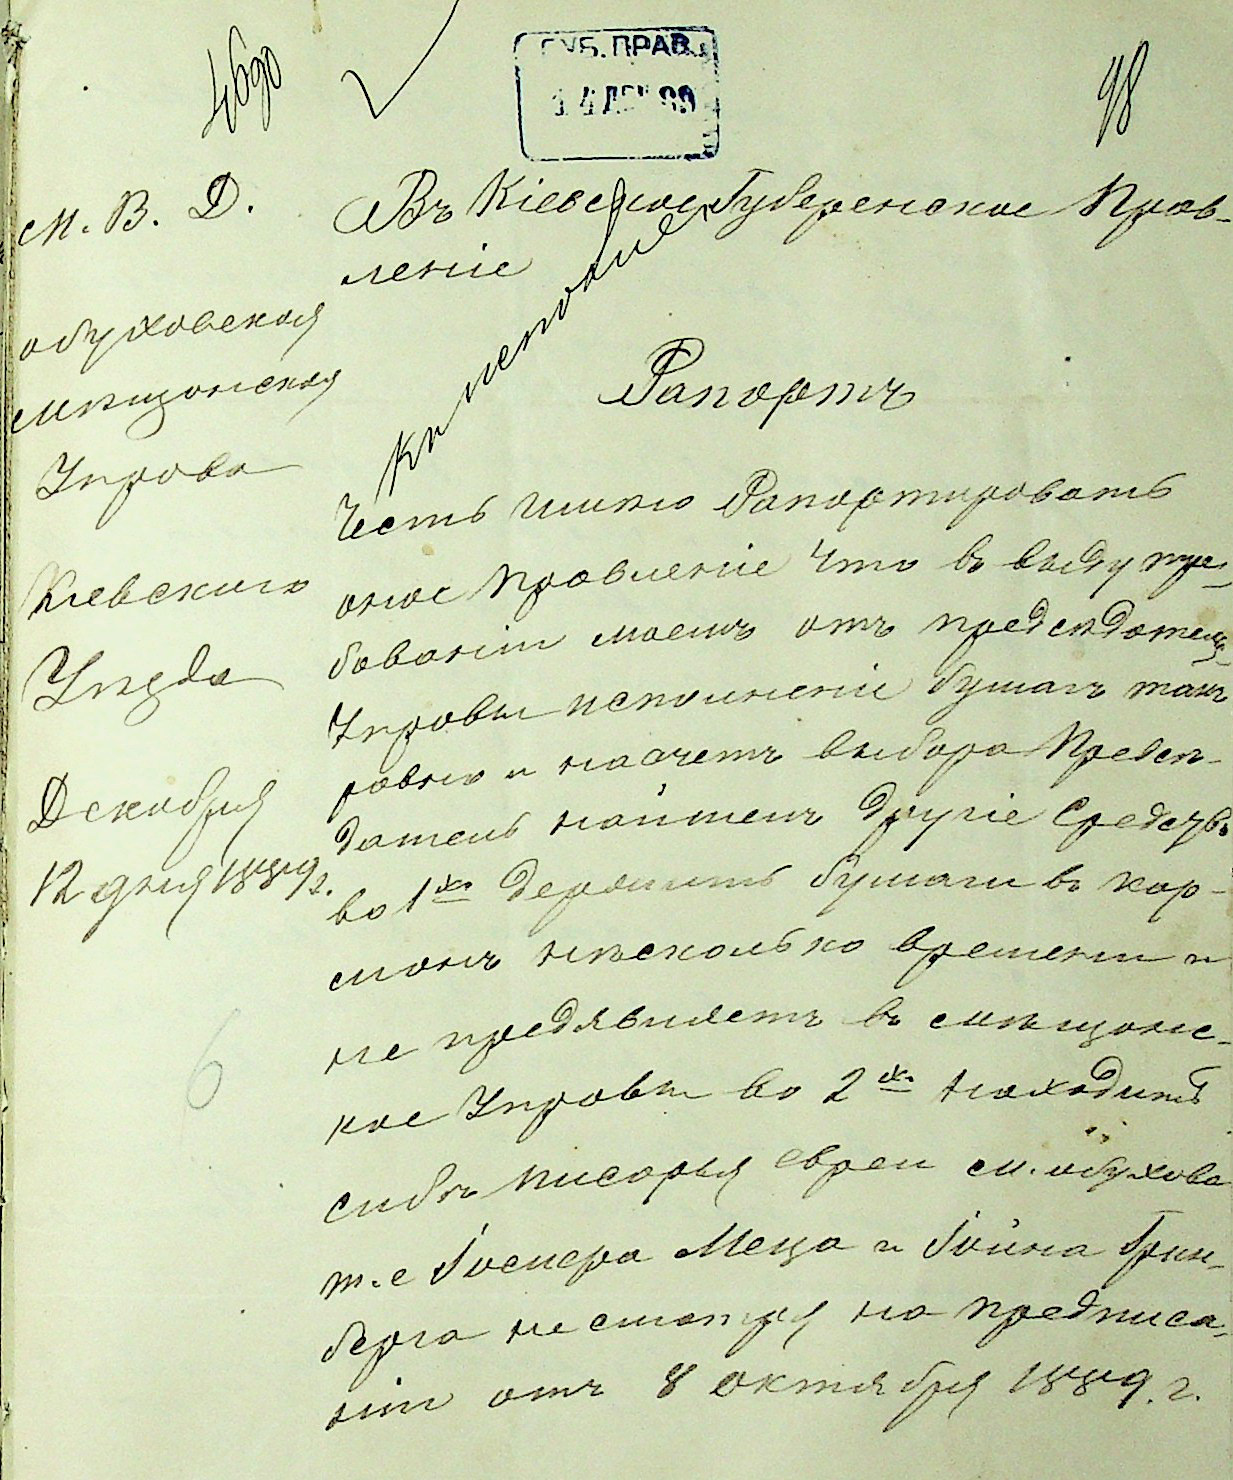 4690
98
ГУБ. ПРАВ.
14 ДЕК 89
М. В. Д.
Обуховская
мѣщанская
Управа
Кіевскаго
Уѣзда
Декабря
12 дня 1889 г.
6
Въ Кіевское Губеренское Прав-
леніе
Рапортъ
Честь имѣю Рапортировать
оное Правленіе Что въ виду тре-
бованіи моемъ отъ предсѣдателя
Управы исполненіи бумагъ такъ
ровно и насчетъ выбора Предсѣ-
датель найшелъ другіе Средствъ
во 1хъ держитъ бумаги въ кар-
манъ нѣсколько времени и
не предявляетъ въ мѣщанс-
кое Управы во 2хъ находитъ
сибѣ писарья евреи м. Обухова
т. е Меца и Грин-
берга несматря на предписа-
ніи отъ 8 октября 1889. г.